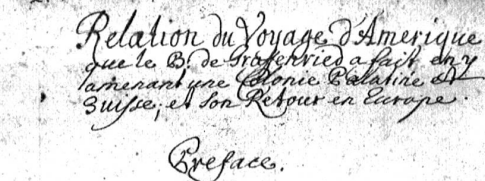 Relation du Voyage d'Amerique
que le B. de Grafenried a fait en y
amenant une Colonie Palatine et
Suisse; et son Retour en Europe.
Preface.